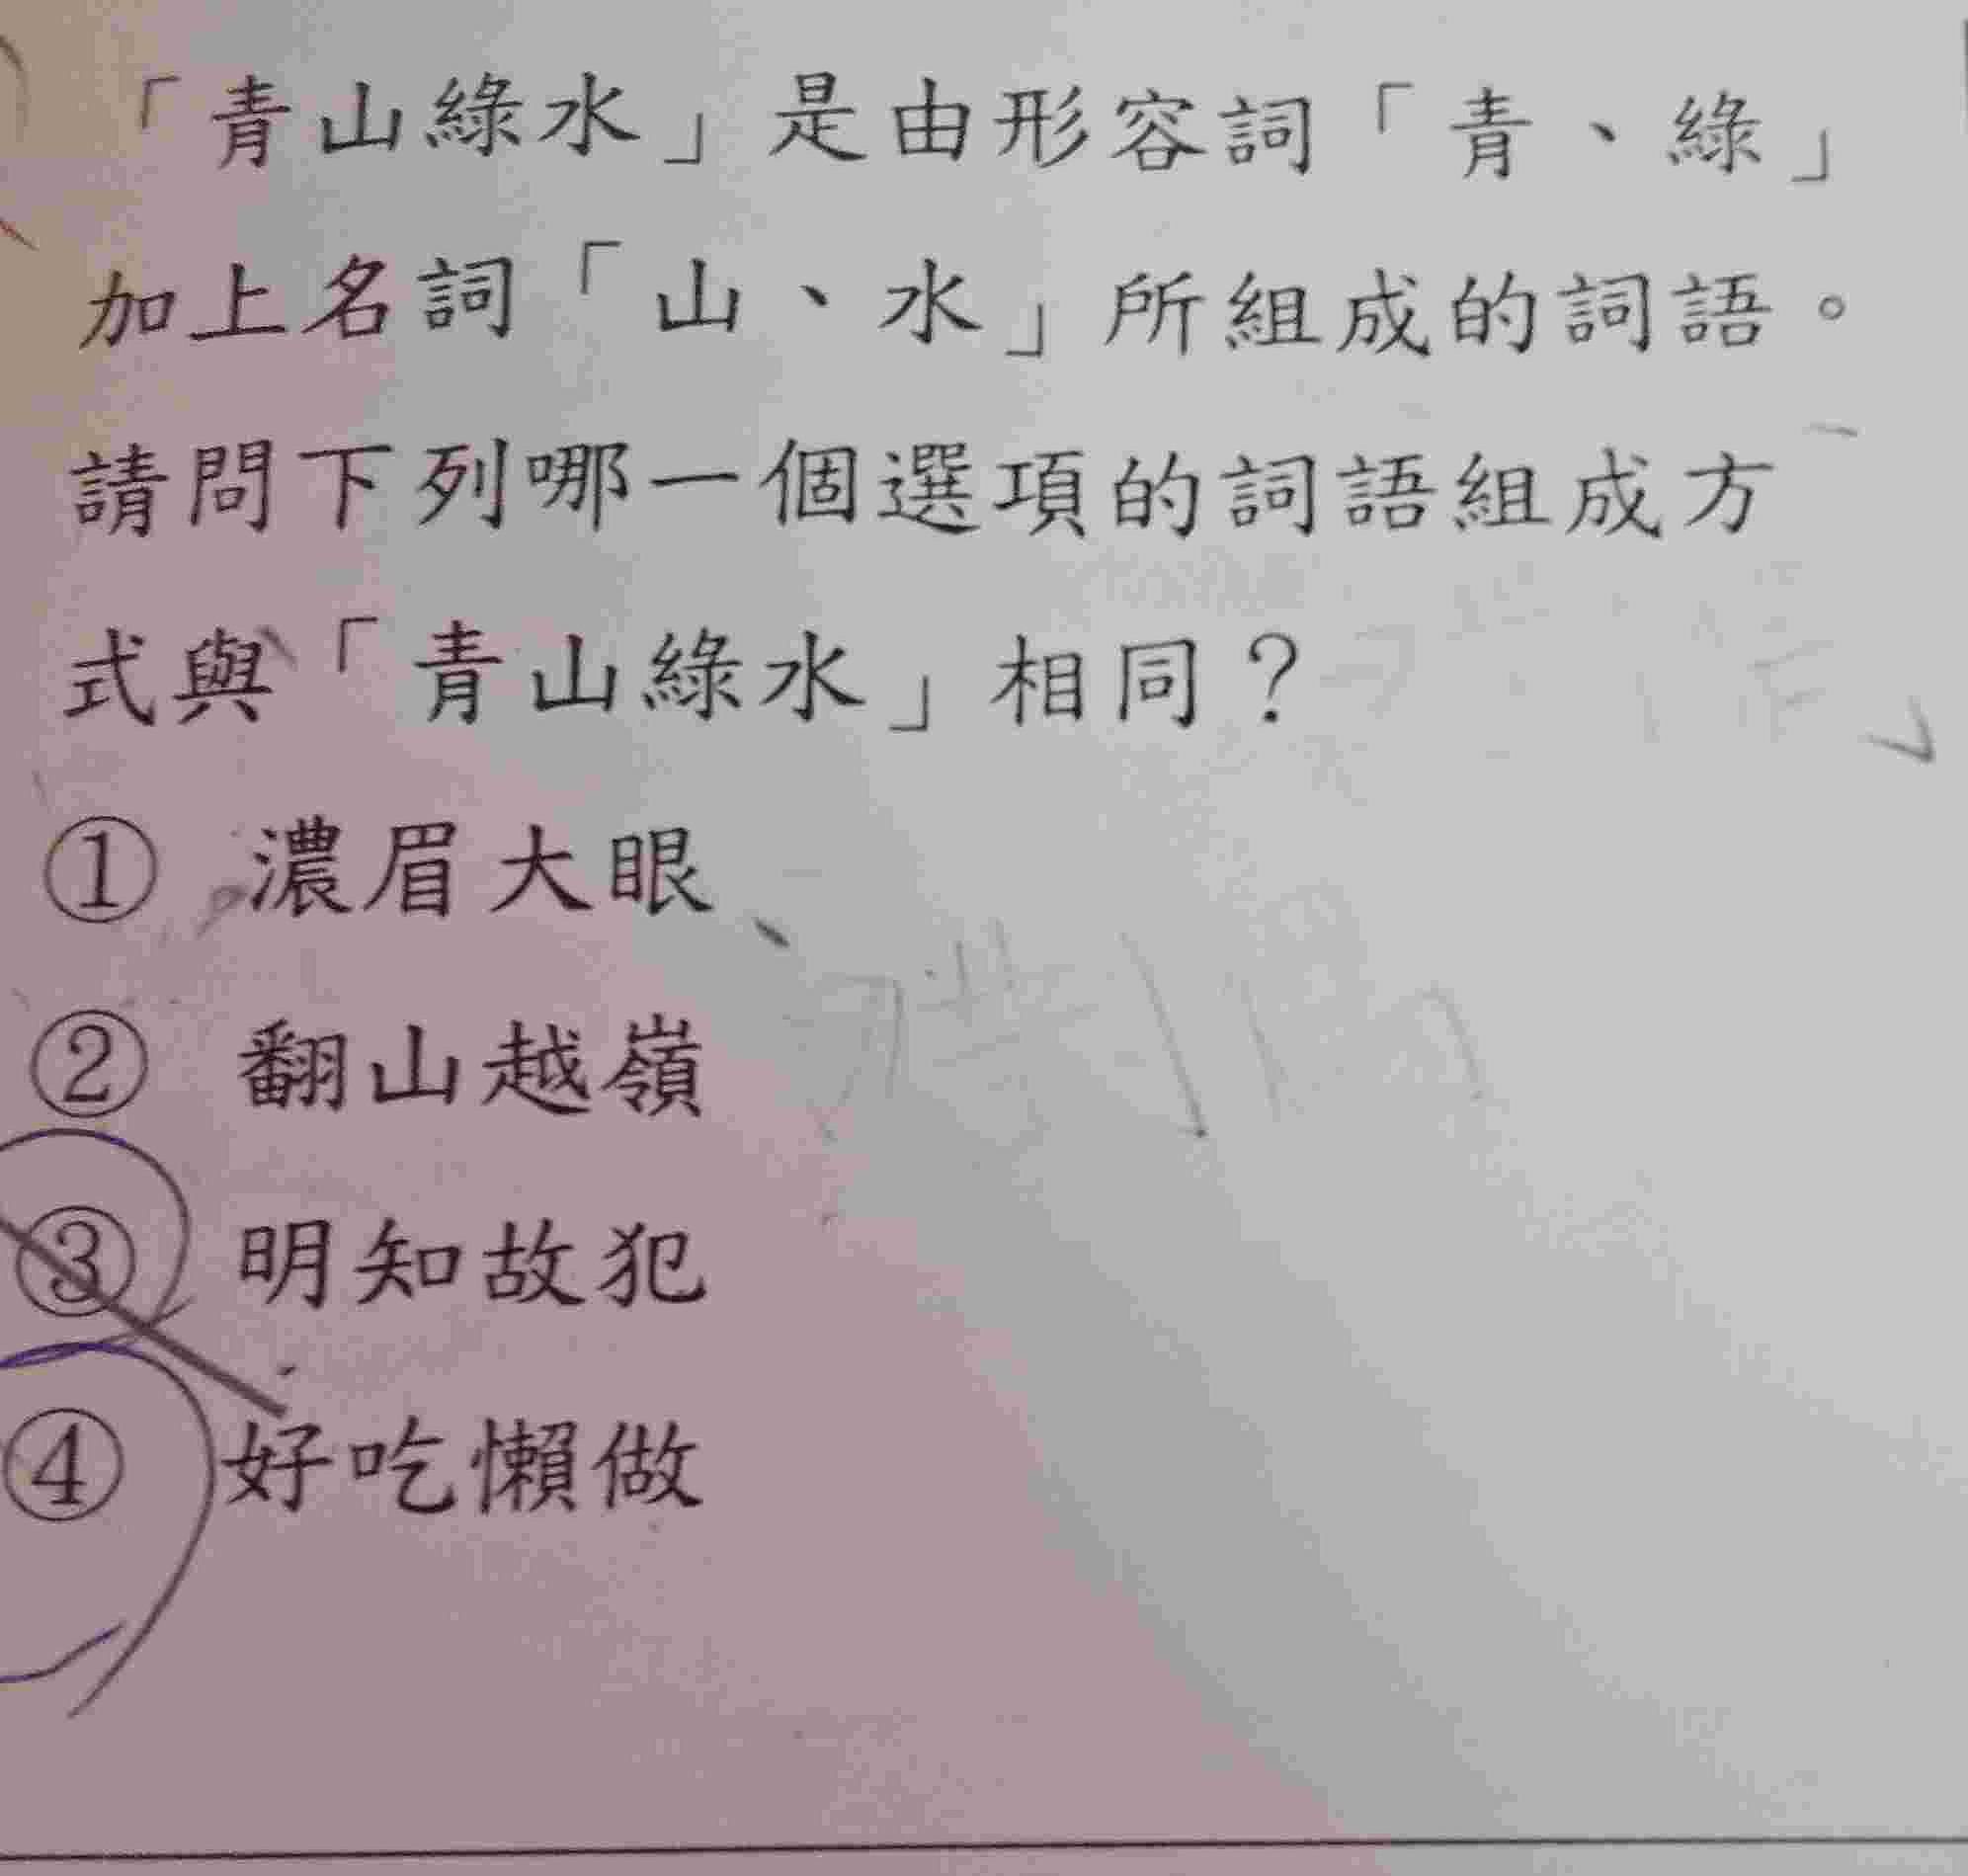 「青山綠水」是由形容詞「青、綠」
加上名詞「山、水」所組成的詞語。
請問下列哪一個選項的詞語組成方
式與「青山綠水」相同？
① 濃眉大眼
② 翻山越嶺
③ 明知故犯
④ 好吃懶做